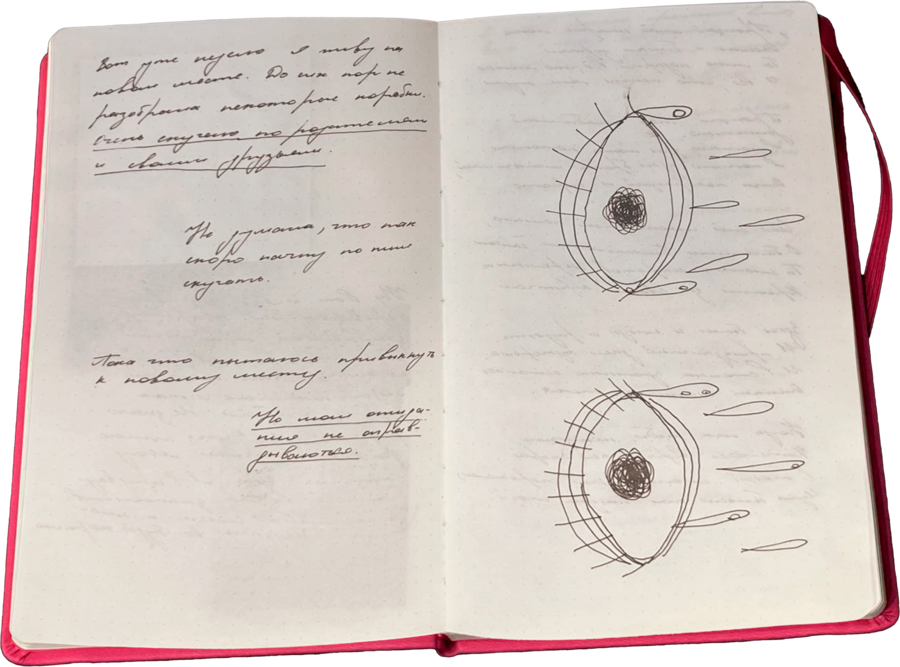 Вот уже неделю я живу на
новом месте. До сих пор не
разобрала некоторые коробки.
Очень скучаю по родителям
и своим друзьям.
Не думала, что так
скоро начну по ним
скучать.
Пока что пытаюсь привыкнуть
к новому месту.
Но мои ожида-
ния не оправ-
дываются.